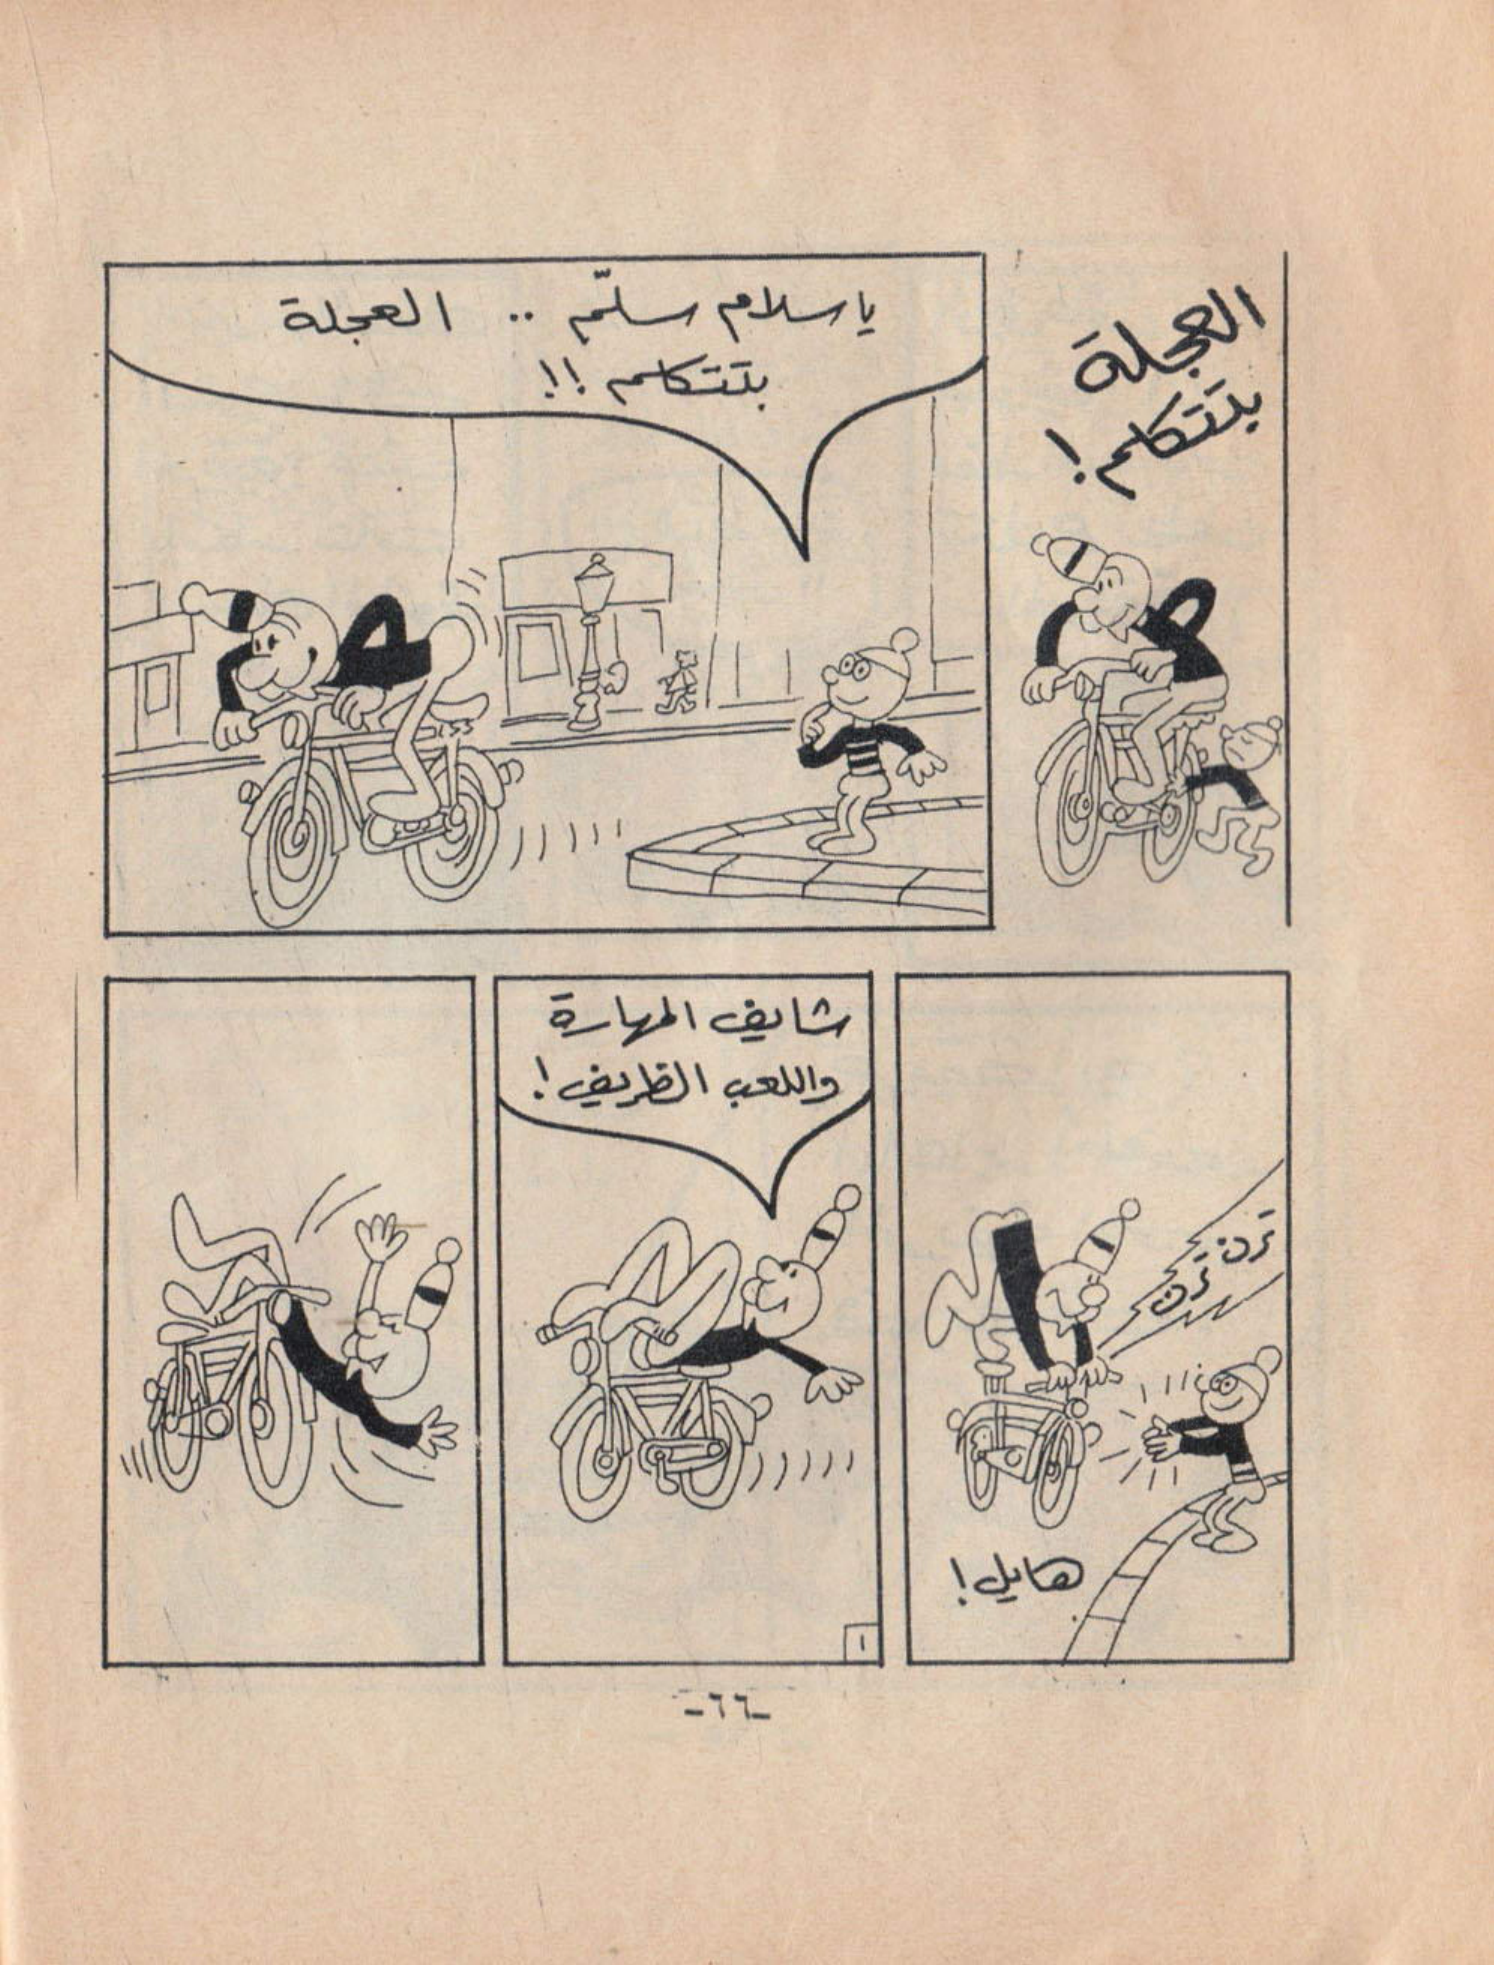 العجلة
بتتكلم!
ياسلام سلّم .. العجلة
بتتكلم !!
ترن ترن
هايل!
شايف المهارة
واللعب الظريف!
١
-٦٦-